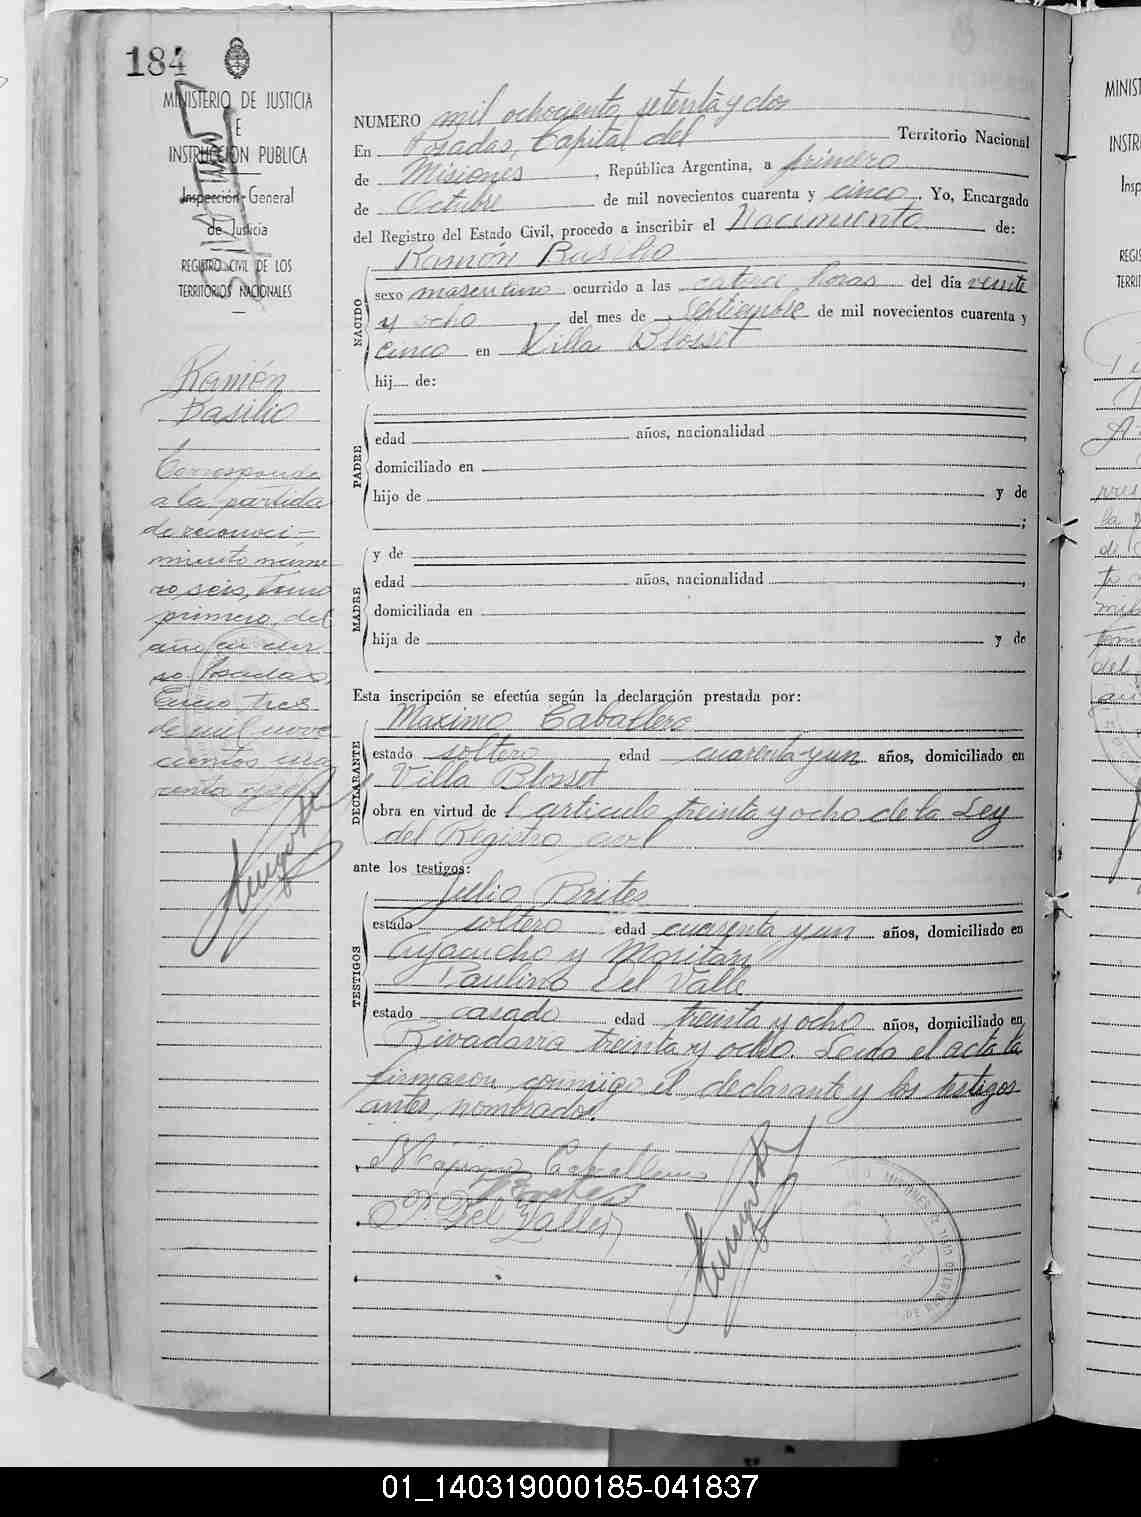 184
MINISTERIO DE JUSTICIA
E
INSTRUCCION PUBLICA
Inspección General
de Justicia
REGISTRO CIVIL DE LOS
TERRITORIOS NACIONALES
Ramón
Basilio
Corresponde
a la partida
de reconoci-
miento núme-
ro seis, tomo
primero, del
año en cur-
so. Posadas,
Enero tres
de mil nove-
cientos cua-
renta y seis
NUMERO mil ochociento setenta y dos
En Posadas, Capital del Territorio Nacional
de Misiones, República Argentina, a primero
de Octubre de mil novecientos cuarenta y cinco. Yo, Encargado
del Registro del Estado Civil, procedo a inscribir el Nacimiento de:
NACIDO
Ramón Basilio
sexo masculino ocurrido a las catorce horas del día veinte
y ocho del mes de Septiembre de mil novecientos cuarenta y
cinco en Villa Blosset
hij de:
PADRE
edad años, nacionalidad
domiciliado en
hijo de y de
;
MADRE
y de
edad años, nacionalidad
domiciliada en
hija de y de
Esta inscripción se efectúa según la declaración prestada por:
DECLARANTE
Maximo Caballero
estado soltero edad cuarenta y un años, domiciliado en
Villa Blosset
obra en virtud de l articulo treinta y ocho de la Ley
del Registro civil
ante los testigos:
TESTIGOS
Julio Brites
estado soltero edad cuarenta y un años, domiciliado en
Ayacucho y Maritan
Paulino Del Valle
estado casado edad treinta y ocho años, domiciliado en
Rivadavia treinta y ocho. Leida el acta la
firmaron conmigo el declarante y los testigos
antes nombrados.
Maximo Caballero
P. Del Valle
01_140319000185-041837